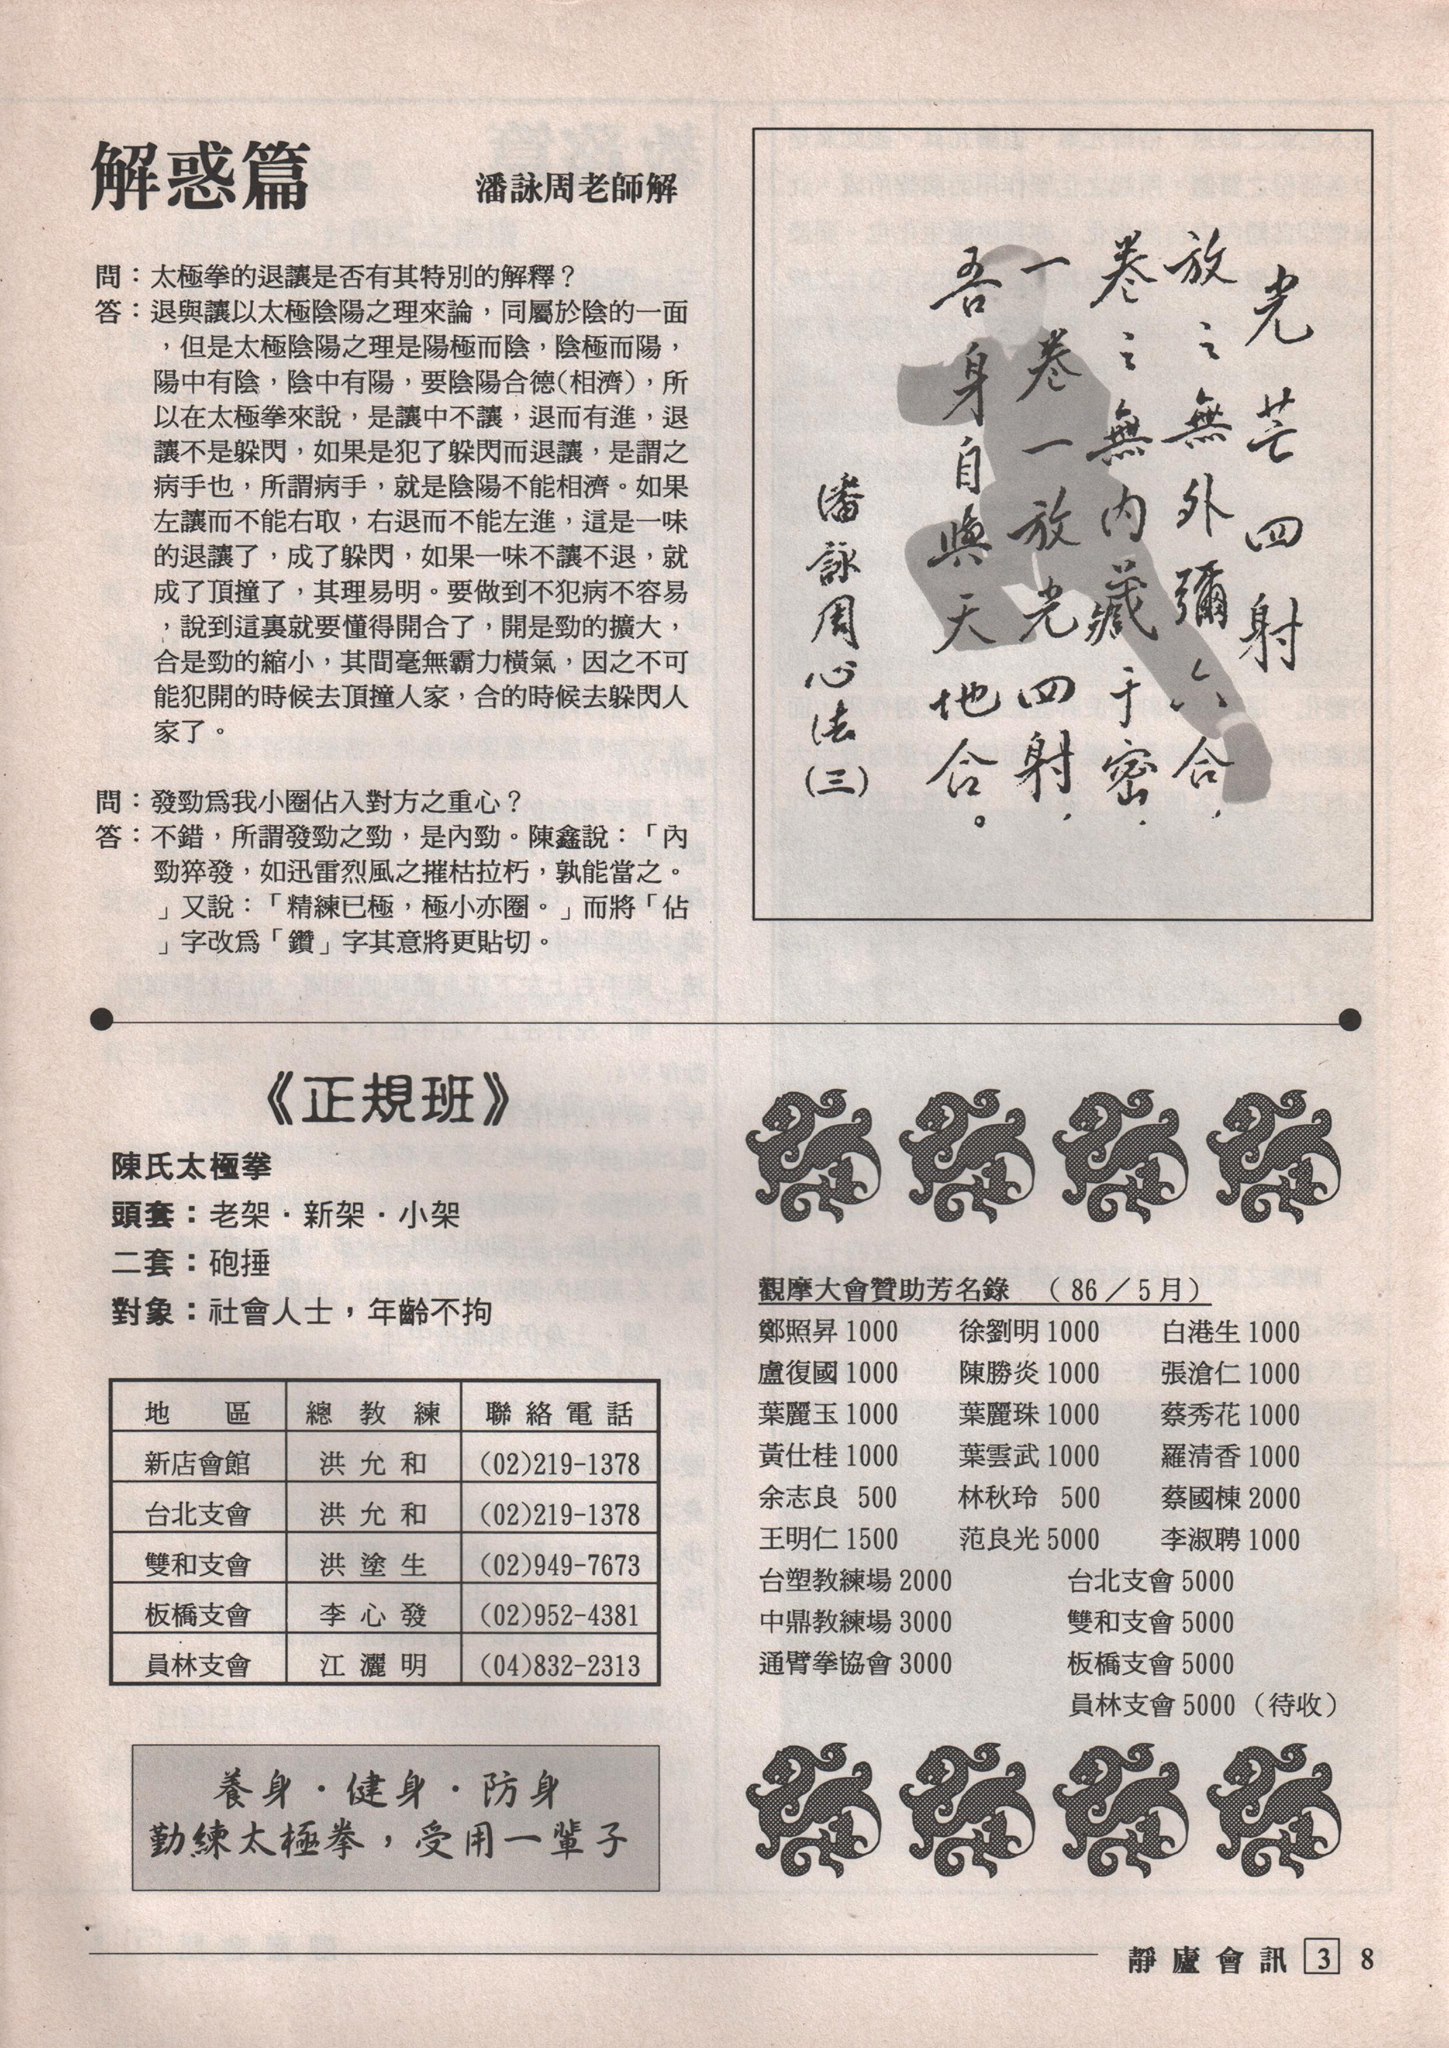 解惑篇
潘詠周老師解
問：太極拳的退讓是否有其特別的解釋？
答：退與讓以太極陰陽之理來論，同屬於陰的一面
，但是太極陰陽之理是陽極而陰，陰極而陽，
陽中有陰，陰中有陽，要陰陽合德(相濟)，所
以在太極拳來說，是讓中不讓，退而有進，退
讓不是躲閃，如果是犯了躲閃而退讓，是謂之
病手也，所謂病手，就是陰陽不能相濟。如果
左讓而不能右取，右退而不能左進，這是一味
的退讓了，成了躲閃，如果一味不讓不退，就
成了頂撞了，其理易明。要做到不犯病不容易
，說到這裏就要懂得開合了，開是勁的擴大，
合是勁的縮小，其間毫無霸力橫氣，因之不可
能犯開的時候去頂撞人家，合的時候去躲閃人
家了。
問：發勁爲我小圈佔入對方之重心？
答：不錯，所謂發勁之勁，是內勁。陳鑫說：「內
勁猝發，如迅雷烈風之摧枯拉朽，孰能當之。
」又說：「精練已極，極小亦圈。」而將「佔
」字改爲「鑽」字其意將更貼切。
光芒四射
放之無外彌六合，
卷之無內藏于密，
一卷一放光四射，
吾身自與天地合。
潘詠周心法(三)
《正規班》
陳氏太極拳
頭套：老架·新架·小架
二套：砲捶
對象：社會人士，年齡不拘
地　區　總教練　聯絡電話
新店會館　洪允和　(02)219-1378
台北支會　洪允和　(02)219-1378
雙和支會　洪塗生　(02)949-7673
板橋支會　李心發　(02)952-4381
員林支會　江灑明　(04)832-2313
養身·健身·防身
勤練太極拳，受用一輩子
觀摩大會贊助芳名錄　（86／5月）
鄭照昇 1000　徐劉明 1000　白港生 1000
盧復國 1000　陳勝炎 1000　張滄仁 1000
葉麗玉 1000　葉麗珠 1000　蔡秀花 1000
黃仕桂 1000　葉雲武 1000　羅清香 1000
余志良 500　林秋玲 500　蔡國棟 2000
王明仁 1500　范良光 5000　李淑聘 1000
台塑教練場 2000　台北支會 5000
中鼎教練場 3000　雙和支會 5000
通臂拳協會 3000　板橋支會 5000
員林支會 5000（待收）
靜廬會訊 3 8